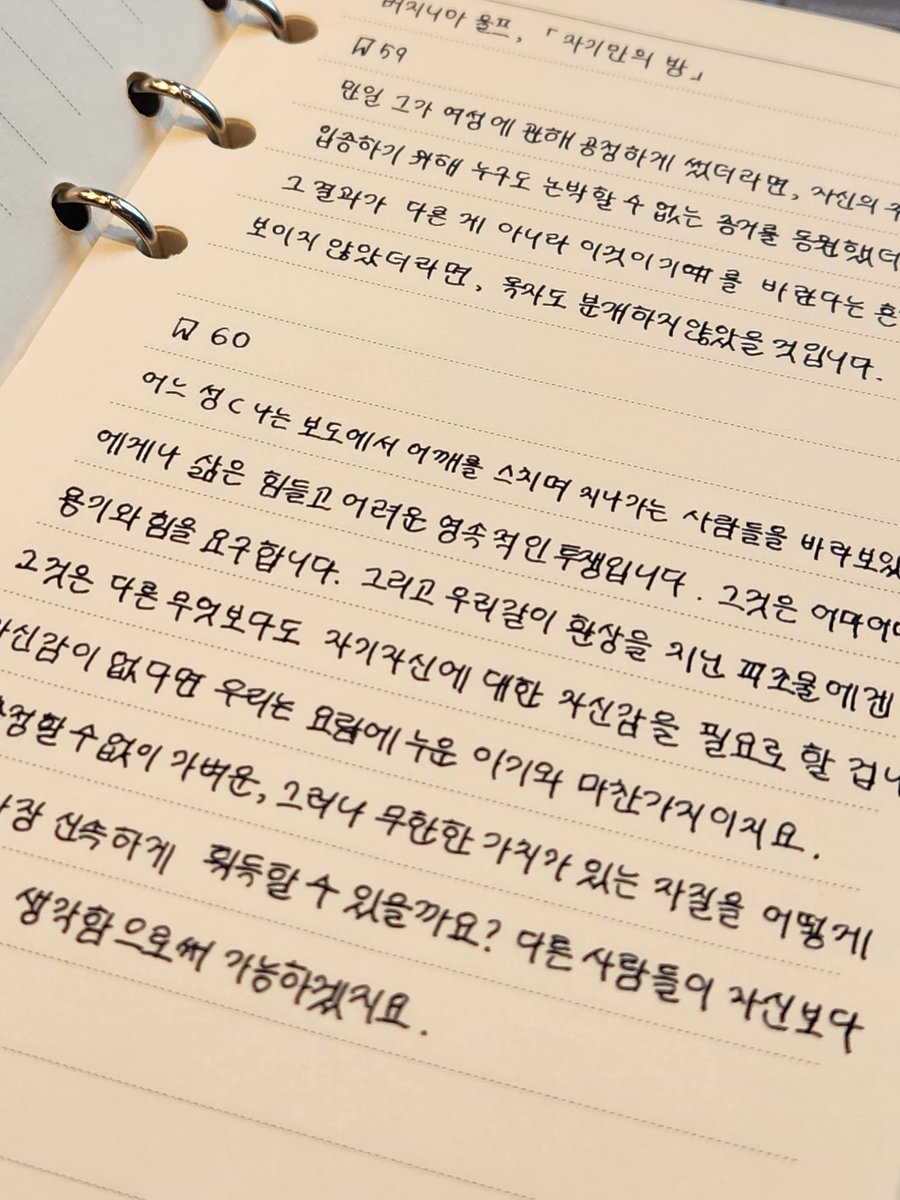 버지니아 울프, 「자기만의 방」
59
만일 그가 여성에 관해 공정하게 썼더라면, 자신의
입증하기 위해 누구도 논박할 수 없는 증거를 동원했더
그 결과가 다른 게 아니라 이것이기를 바란다는
보이지 않았더라면, 독자도 분개하지 않았을 것입니다.
60
어느 성(나는 보도에서 어깨를 스치며 지나가는 사람들을 바라보았
에게나 삶은 힘들고 어려운 영속적인 투쟁입니다. 그것은 어마어마
용기와 힘을 요구합니다. 그리고 우리같이 환상을 지닌 피조물에겐
그것은 다른 무엇보다도 자기자신에 대한 자신감을 필요로 할 겁니
자신감이 없다면 우리는 요람에 누운 아기와 마찬가지이지요.
추정할 수 없이 가벼운, 그러나 무한한 가치가 있는 자질을 어떻게
가장 신속하게 획득할 수 있을까요? 다른 사람들이 자신보다
생각함으로써 가능하겠지요.